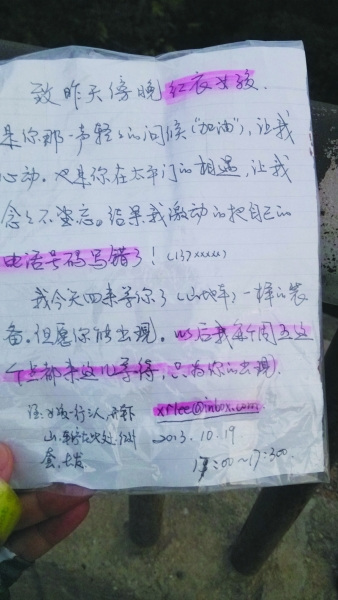 致昨天傍晚红衣女孩.
是你那一声轻轻的问候("加油"), 让我
心动. 也是你在太平门的相遇, 让我
念念不忘. 结果我激动的把自己的
电话号码写错了! (137xxxxx)
我今天回来等你了(山地车)一样的装
备. 但愿你能出现). 以后我每个周五这
个点都来这儿等待, 只为你的出现).
xrlee@inbox.com
2013.10.19
17:00~17:300.